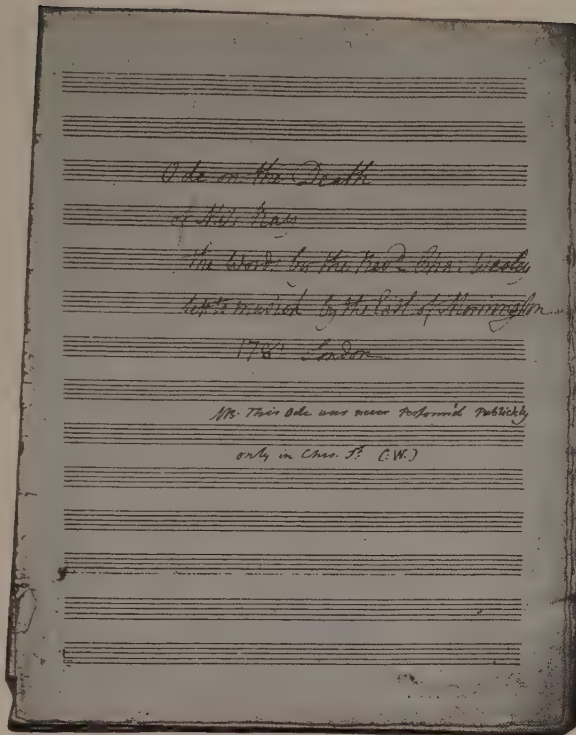 Ode on the Death
of
The Words by the Revd. Chas. Wesley
Set to musick by the Earl of Mornington
London
NB. This Ode was never Perform'd Publickly
only in Chas. St. (C.W.)